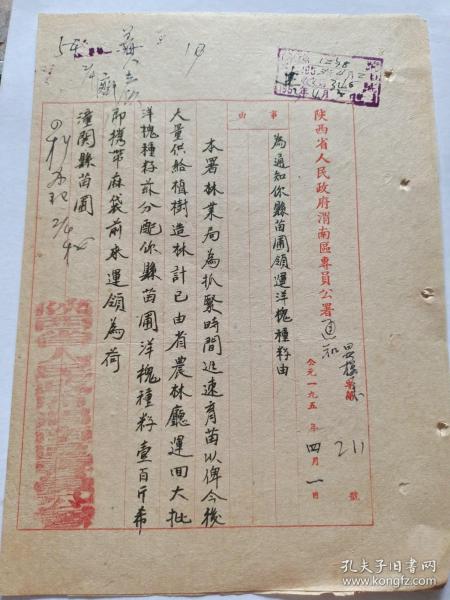 陕西省人民政府渭南區專員公署通知
公元一九五 年四月一日
211 號
事由
為通知你縣苗圃領運洋槐種籽由
本署林業局為抓緊時間迅速育苗以俾今後
大量供給植樹造林計已由省農林廳運回大批
洋槐種籽茲分配你縣苗圃洋槐種籽壹百斤希
即携帶麻袋前來運領為荷
潼関縣苗圃
孔夫子旧书网
www.kongfz.com